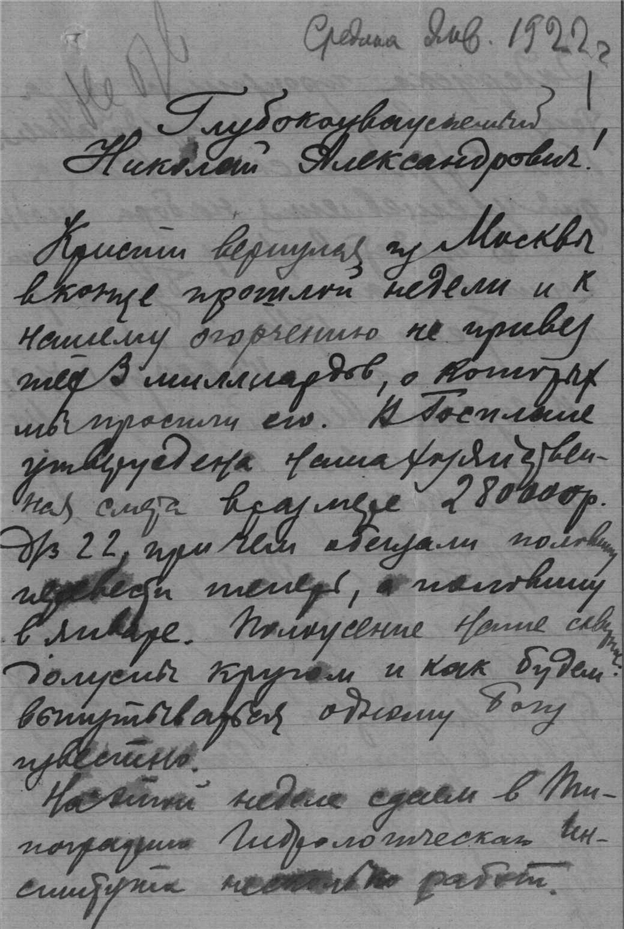 Средина Янв. 1922 г
Глубокоуважаемый
Николай Александрович!
Кристи вернулся из Москвы
в конце прошлой недели и к
нашему огорчению не привез
тех 3 миллиардов, о которых
мы просили его. В Госплане
утверждена наша хозяйствен-
ная смета в размере 280000 р.
22, причем обещали половину
перевести теперь, а половину
в январе. Положение наше
должны кругом и как будем
выпутываться одному Богу
известно.
На этой неделе сдаем в Ти-
пографию Гидрологическаго Ин-
ститута несколько работ.